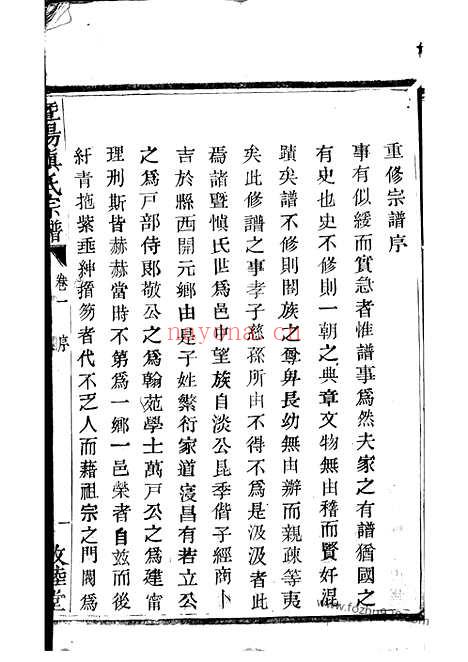 重修宗譜序
事有似緩而實急者惟譜事爲然夫家之有譜猶國之
有史也史不修則一朝之典章文物無由稽而賢奸混
蹟矣譜不修則闔族之尊卑長幼無由辦而親疎等夷
矣此修譜之事孝子慈孫所由不得不爲是汲汲者此
焉諸暨慎氏世爲邑中望族自淡公昆季偕子經商卜
吉於縣西開元鄉由是子姓繁衍家道寖昌有若立公
之爲戸部侍郎敬公之爲翰苑學士萬戸公之爲建甯
理刑斯皆赫赫當時不第爲一鄉一邑榮者自兹而後
紆青拖紫垂紳搢笏者代不乏人而藉祖宗之門閥爲
暨陽慎氏宗譜
卷一
序
一
敦睦堂
nayona.cn
www.fozhu918.com